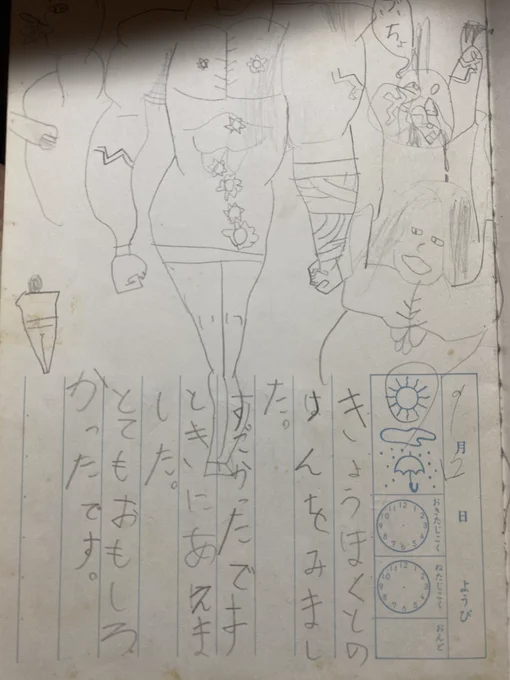 9月2日 ようび
おきたじこく
ねたじこく
おんど
きょうほくとの
けんをみまし
た。
すごかったです
ときにあえま
した。
とてもおもしろ
かったです。